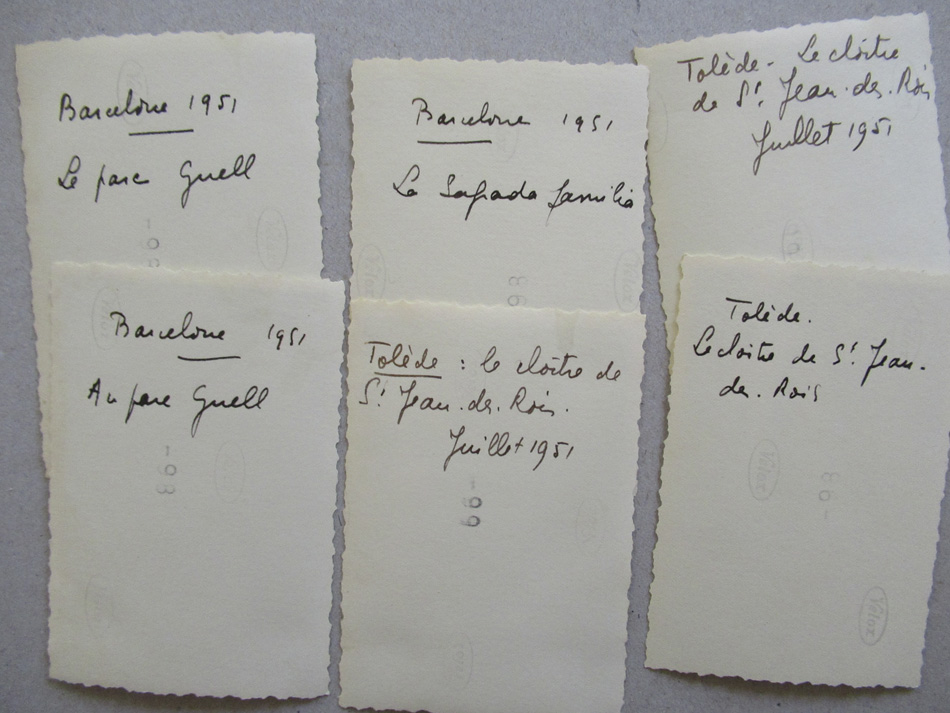 Barcelone 1951
Le parc Guell
-99
Barcelone 1951
La Sagrada familia
86
Tolède - Le cloître
de St. Jean-des-Rois
Juillet 1951
Barcelone 1951
Au parc Guell
-98
Tolède : le cloître de
St Jean-des-Rois.
Juillet 1951
-99
Tolède.
Le cloître de St. Jean-
des-Rois
Velox
86-
Velox